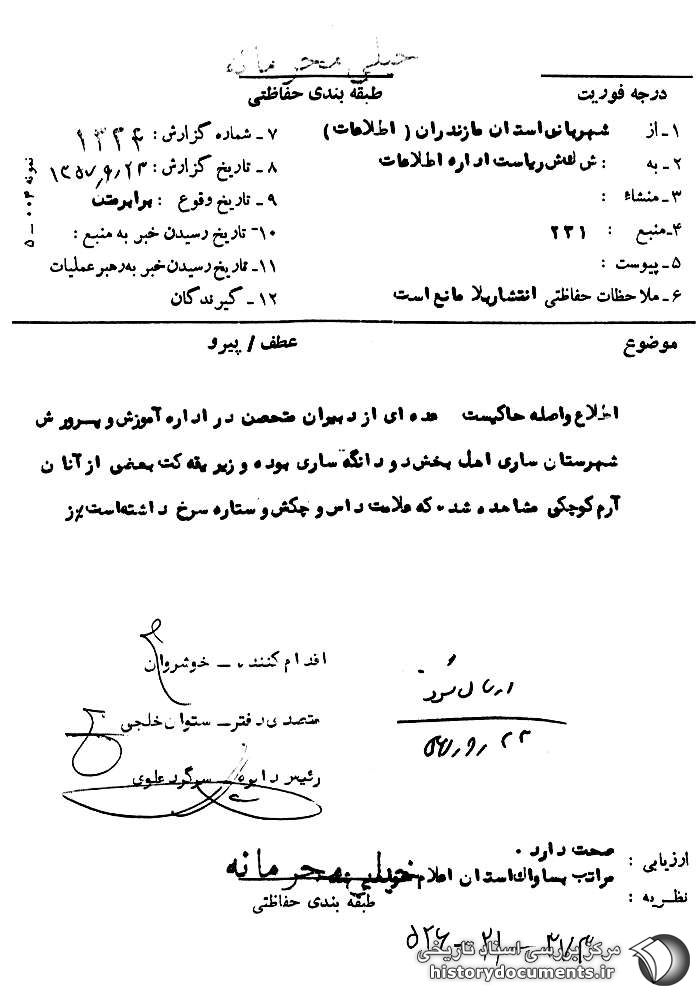 خیلی محرمانه
طبقه بندی حفاظتی
درجه فوریت
۱ـ از شهربانی استان مازندران ( اطلاعات )
۲ـ به : ش ک ش ریاست اداره اطلاعات
۳ـ منشاء :
۴ـ منبع : ۲۳۱
۵ـ پیوست :
۶ـ ملاحظات حفاظتی انتشار بلا مانع است
۷ـ شماره گزارش :
۸ـ تاریخ گزارش : ۱۳۵۷٫۹٫۲۳
۹ـ تاریخ وقوع : برابر متن
۱۰ـ تاریخ رسیدن خبر به منبع :
۱۱ـ تاریخ رسیدن خبر به رهبر عملیات
۱۲ـ گیرندگان
نمونه ۰۰۴ ـ ۵
موضوع
عطف / پیرو
اطلاع واصله حاکیست عده ای از دبیران متحصن در اداره آموزش و پرورش
شهرستان ساری اهل بخش دودانگه ساری بوده و زیر یقه کت بعضی از آنان
آرم کوچکی مشاهده شده که علامت داس و چکش و ستاره سرخ داشته است
اقدام کننده ـ خوشروان
متصدی دفتر ـ ستوان خلجی
رئیس دایره ـ سرگرد علوی
ارسال شود
۲۳ ر ۹ ر ۵۷
ارزیابی : صحت دارد .
نظریه : مراتب بساواک استان اعلام
خیلی محرمانه
طبقه بندی حفاظتی
مرکز بررسی اسناد تاریخی
historydocuments.ir